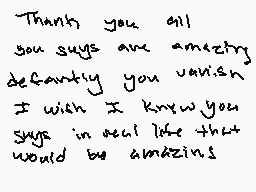 Thank you all
you guys are amazing
defantly you vanish
I wish I knew you
guys in real life that
would be amazing